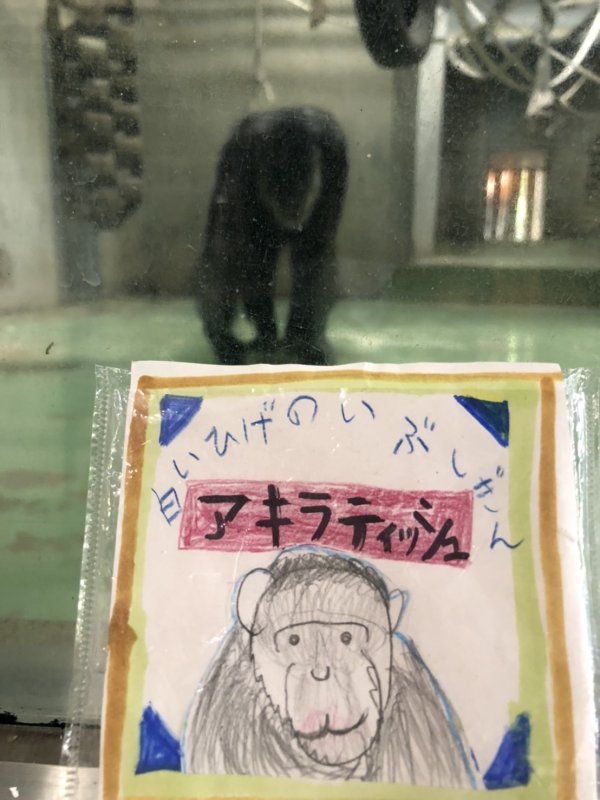 白いひげのいぶしぎん
アキラティッシュ